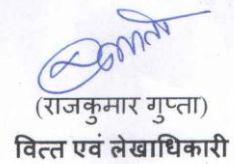 (राजकुमार गुप्ता)
वित्त एवं लेखाधिकारी